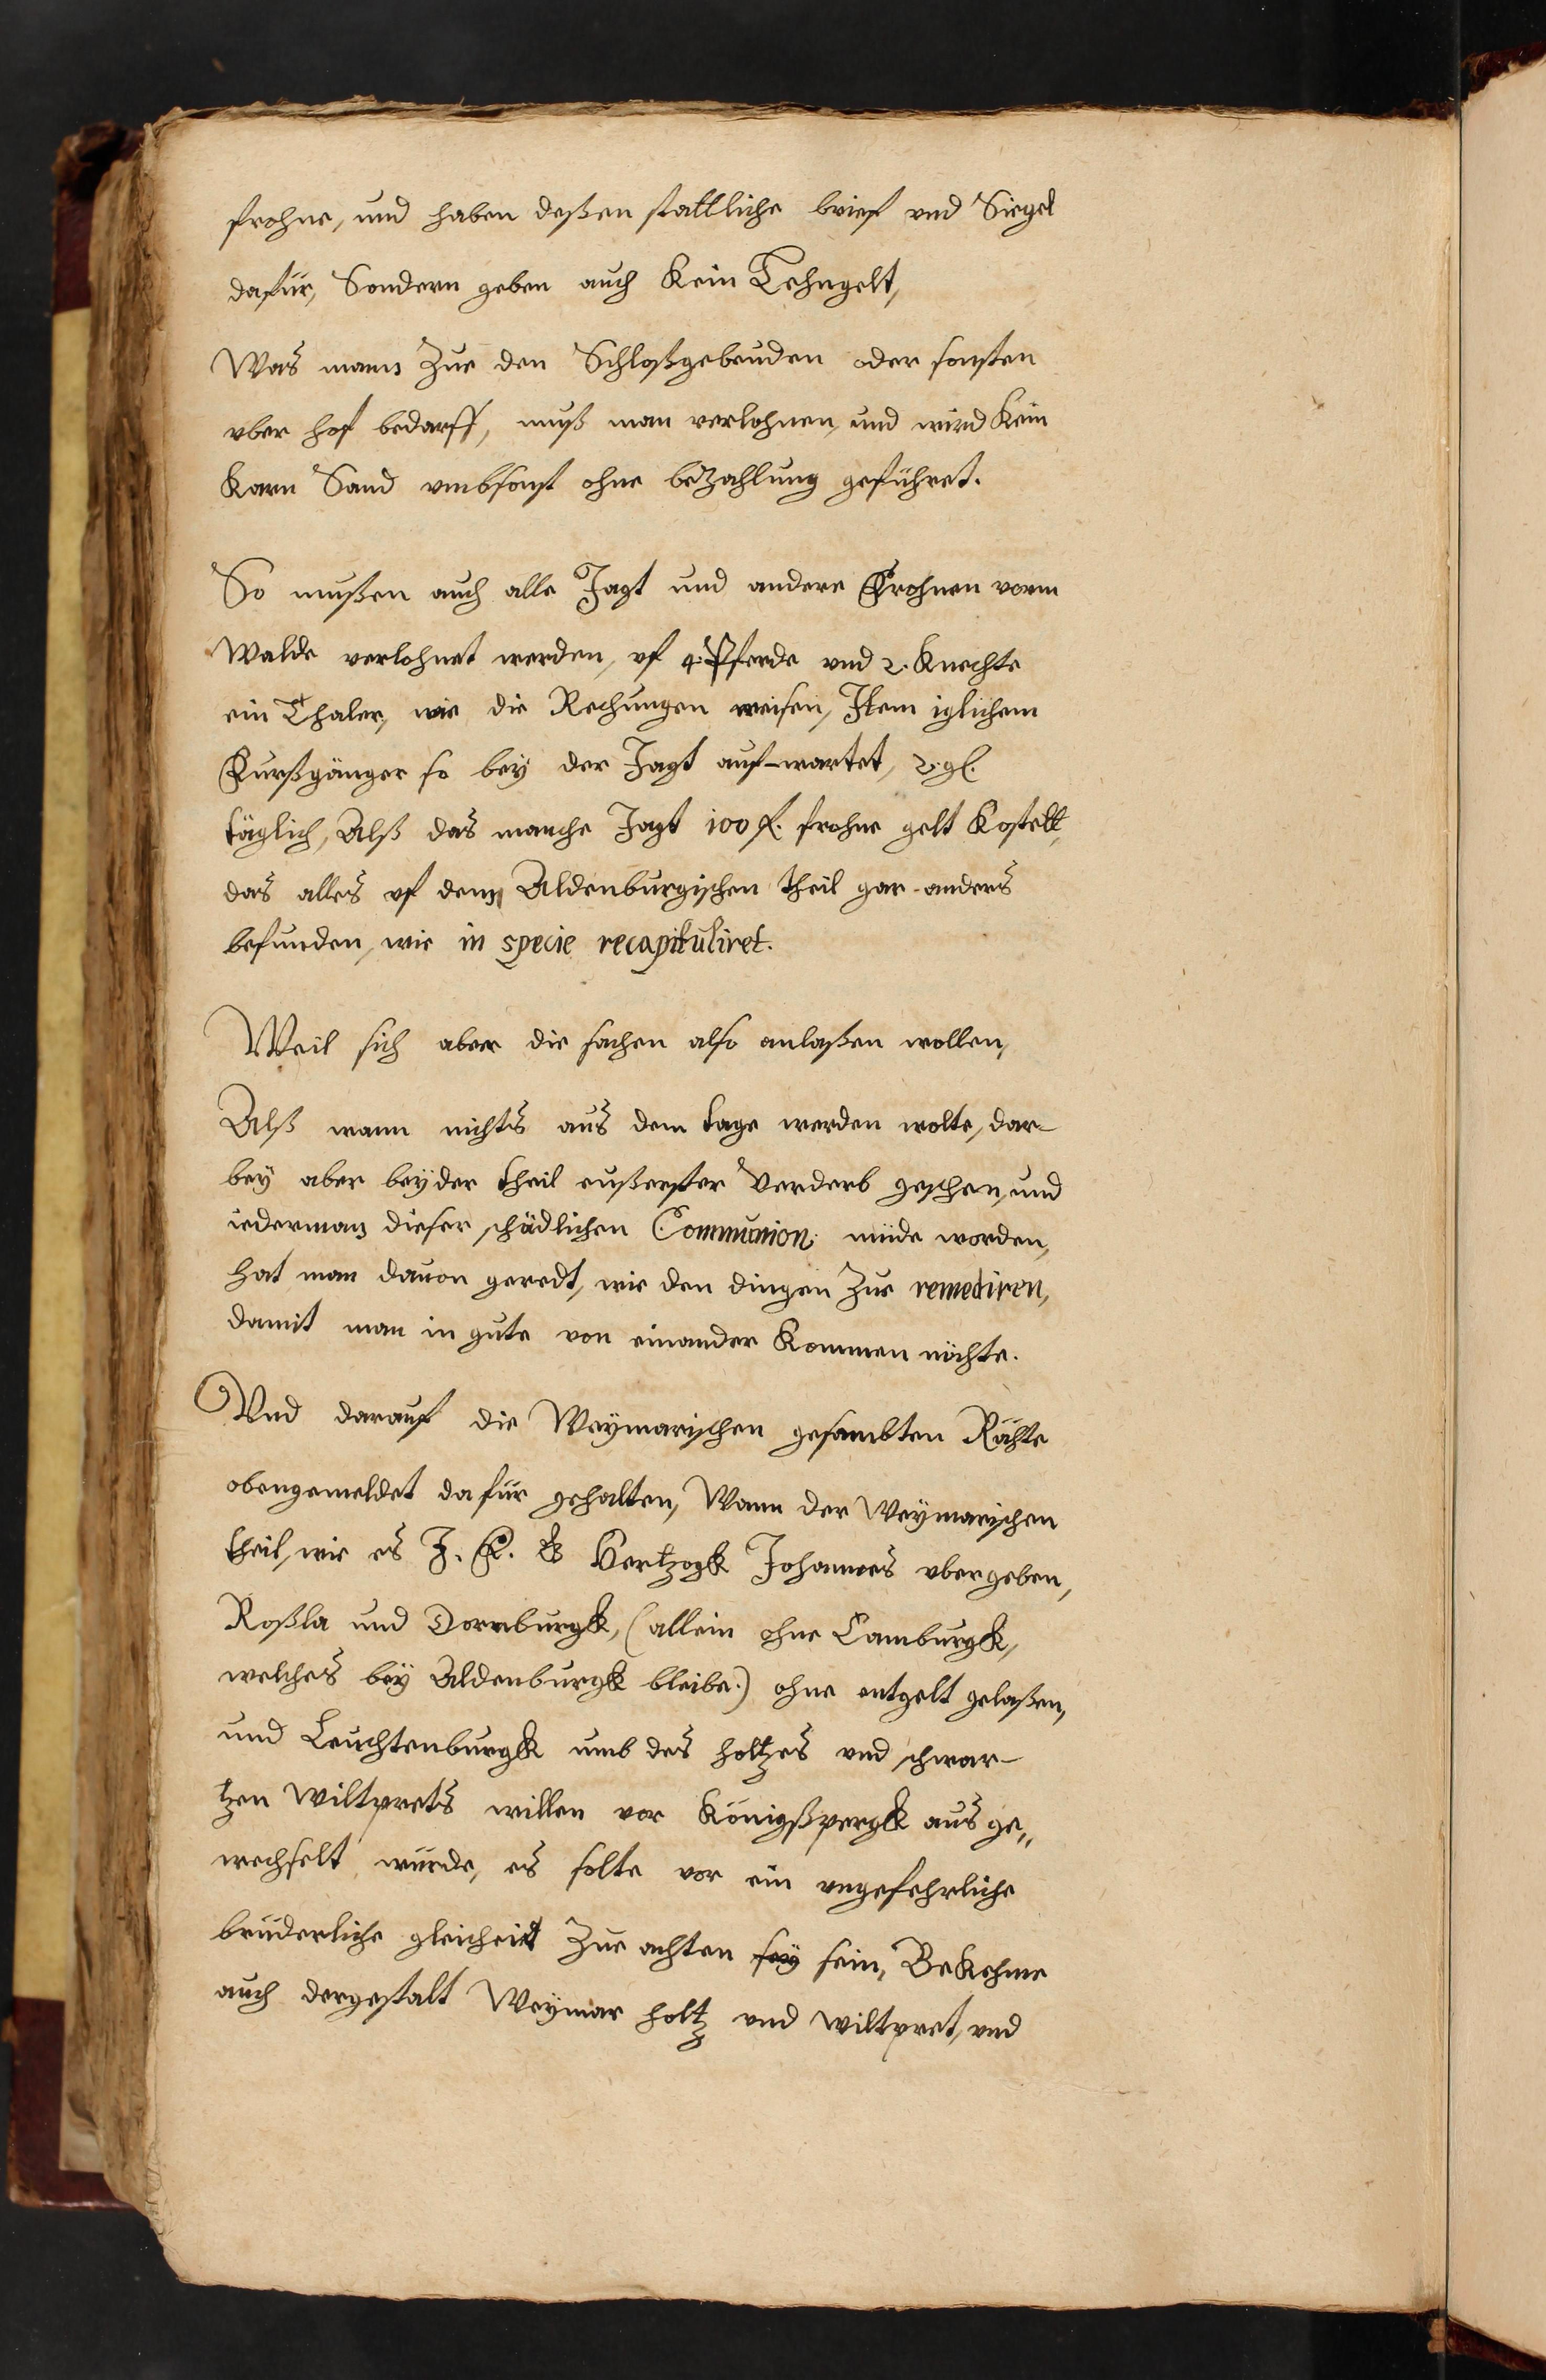 frohne, und haben deßen stattliche brief vnd Siegel
dafür, Sondern geben auch Kein Lehngelt,
Was mann Zue den Schloßgebeuden oder sonsten
vber hof bedarff, muß man verlohnen, und wird Kein
Karn Sand vmbsonst ohne beZahlung geführet.
So mußen auch alle Jagt und andere Frohnen vorm
Walde verlohnet werden, vf 4. Pferde vnd 2. Knechte
ein Thaler, wie die Rechungen weisen, Item iglichem
Fueßgänger so bey der Jagt auf-wartet, 2. gl.
täglich, Alß das manche Jagt 100 f. frohne gelt Kostett,
das alles vf dem Aldenburgischen theil gar anders
befunden, wie in specie recapituliret.
Weil sich aber die sachen also anlaßen wollen,
Alß wann nichts aus dem tage werden wolte, dar-
bey aber beyder theil eußerster Verderb geschen, und
iederman dieser schädlichen Communion müde worden,
hat man dauon geredt, wie den dingen Zue remediren,
damit man in gute von einander Kommen möchte.
Vnd darauf die Weymarischen gesambten Räthe
obengemeldet dafür gehalten, Wann der Weymarischen
theil, wie es J. F. G. Hertzogk Johannes vbergeben,
Roßla und Dornburgk, (allein ohne Camburgk,
welches bey Aldenburgk bleibe.) ohne entgelt gelaßen,
und Leuchtenburgk umb des holtzes vnd schwar-
tzen wiltprets willen vor Königßpergk ausge„
wechselt würde, es solte vor ein vngefehrliche
brüderliche gleicheit Zue achten sey sein, BeKehme
auch dergestalt Weymar holtz vnd wiltpret, vnd